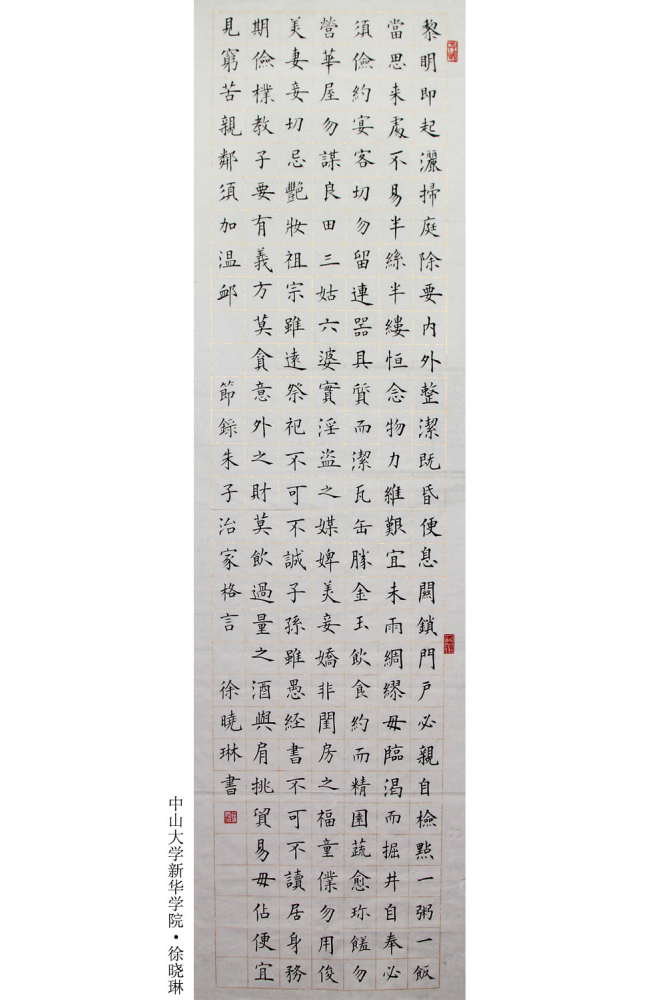 黎明即起灑掃庭除要内外整潔既昏便息關鎖門戶必親自檢點一粥一飯
當思来處不易半絲半縷恒念物力維艱宜未雨綢繆毋臨渴而掘井自奉必
須儉約宴客切勿留連器具質而潔瓦缶勝金玉飲食約而精園蔬愈珎饈勿
營華屋勿謀良田三姑六婆實淫盗之媒婢美妾嬌非閨房之福童僕勿用俊
美妻妾切忌艷妝祖宗雖遠祭祀不可不誠子孫雖愚經書不可不讀居身務
期儉樸教子要有義方莫貪意外之財莫飲過量之酒與肩挑貿易毋佔便宜
見窮苦親鄰須加温卹 節錄朱子治家格言 徐曉琳書
中山大学新华学院·徐晓琳